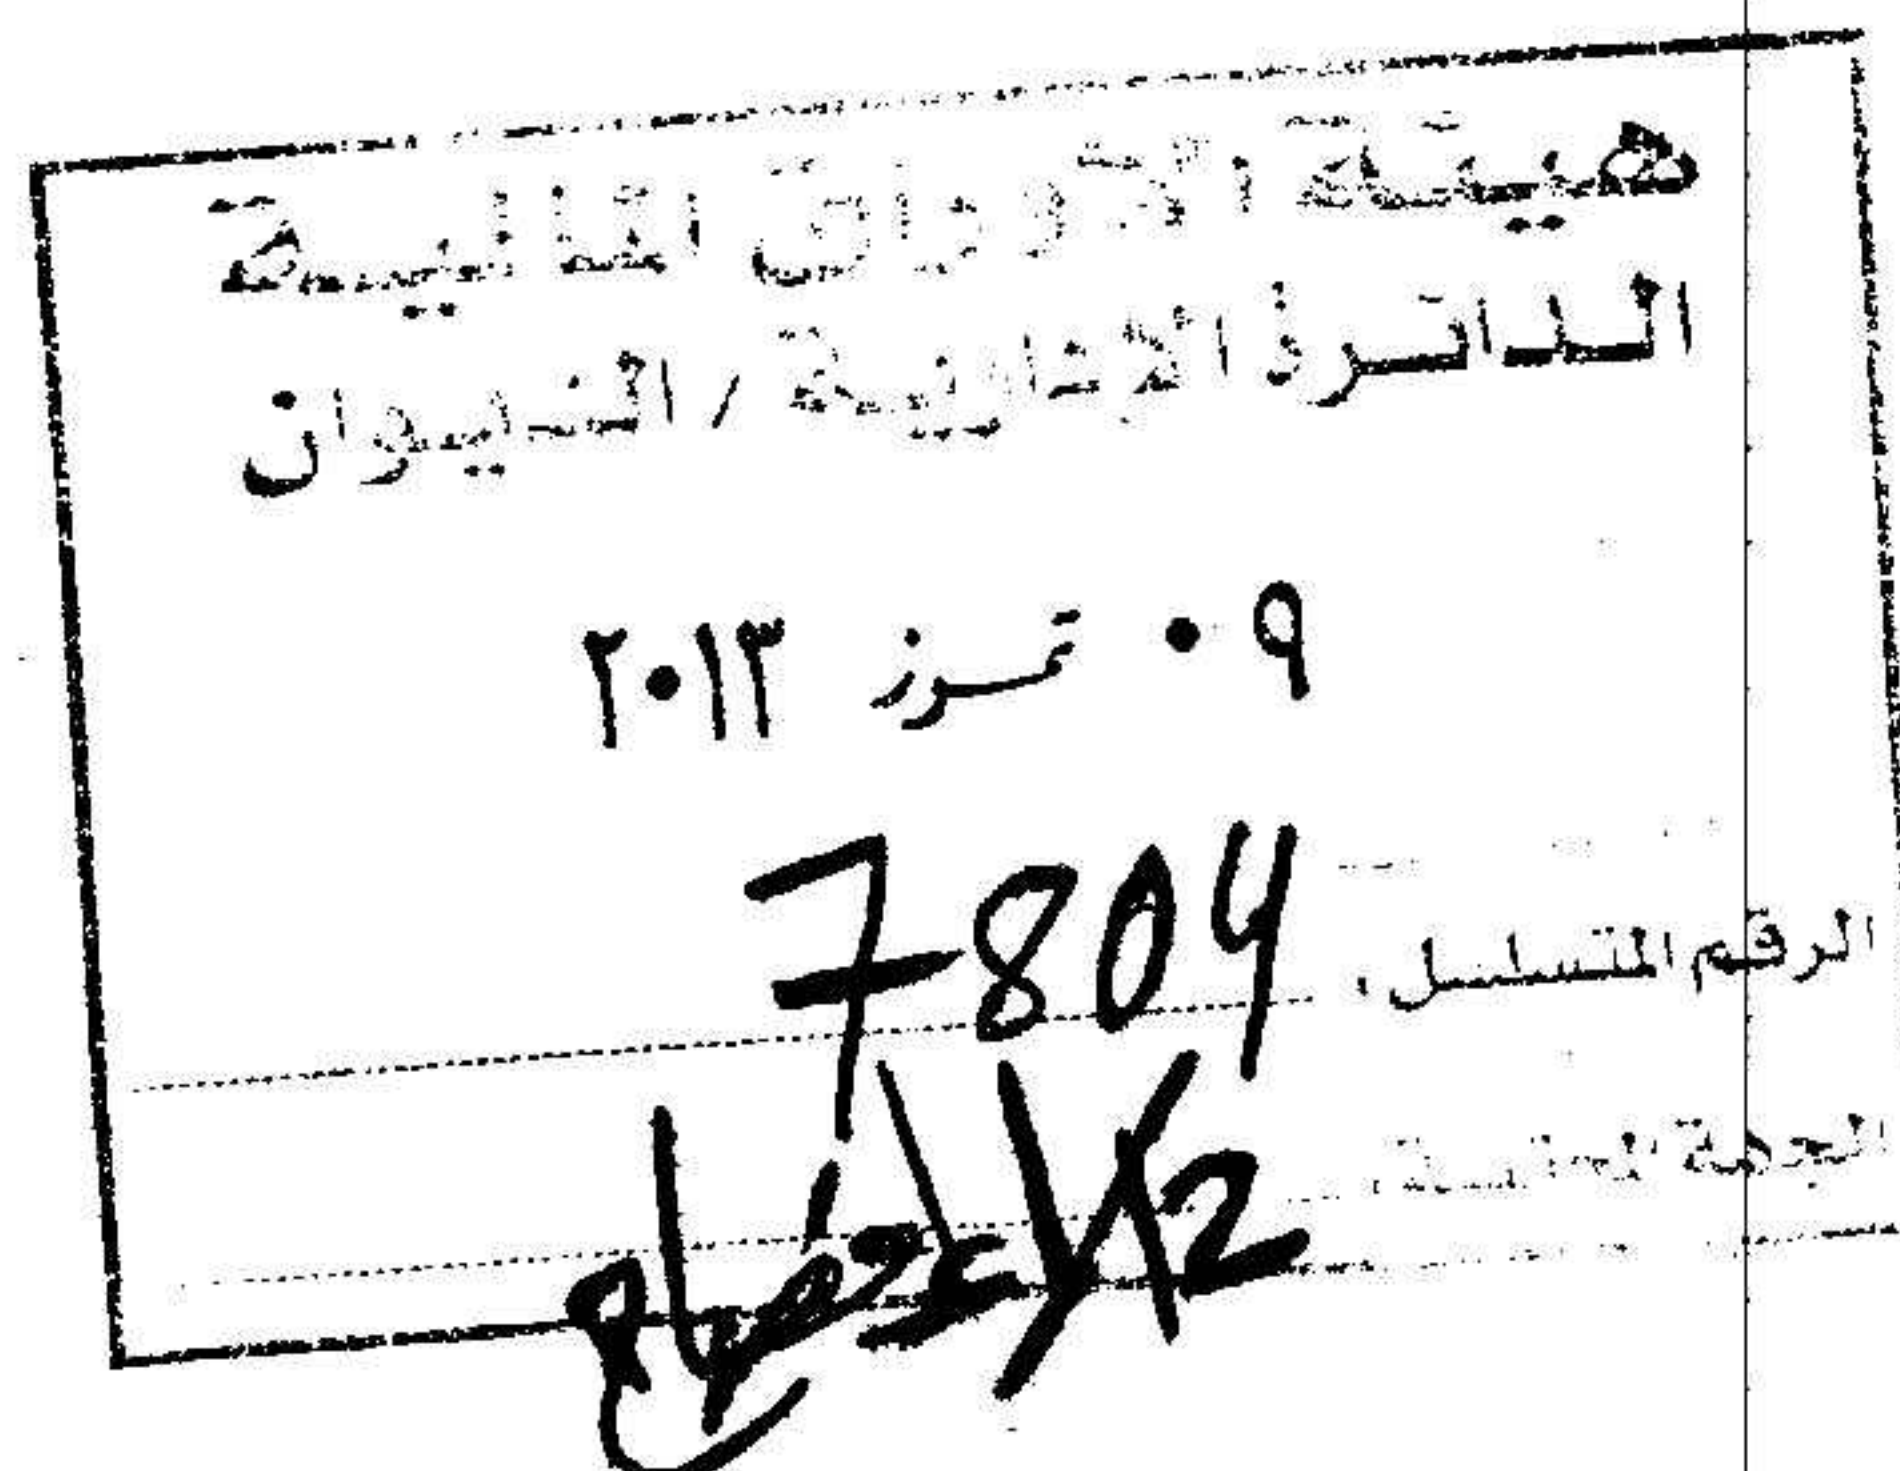 هيئة الأوراق المالية
الدائرة الإدارية / الديوان
٠٩ تموز ٢٠١٣
الرقم المتسلسل: 7804
الجهة المختصة: الإفصاح